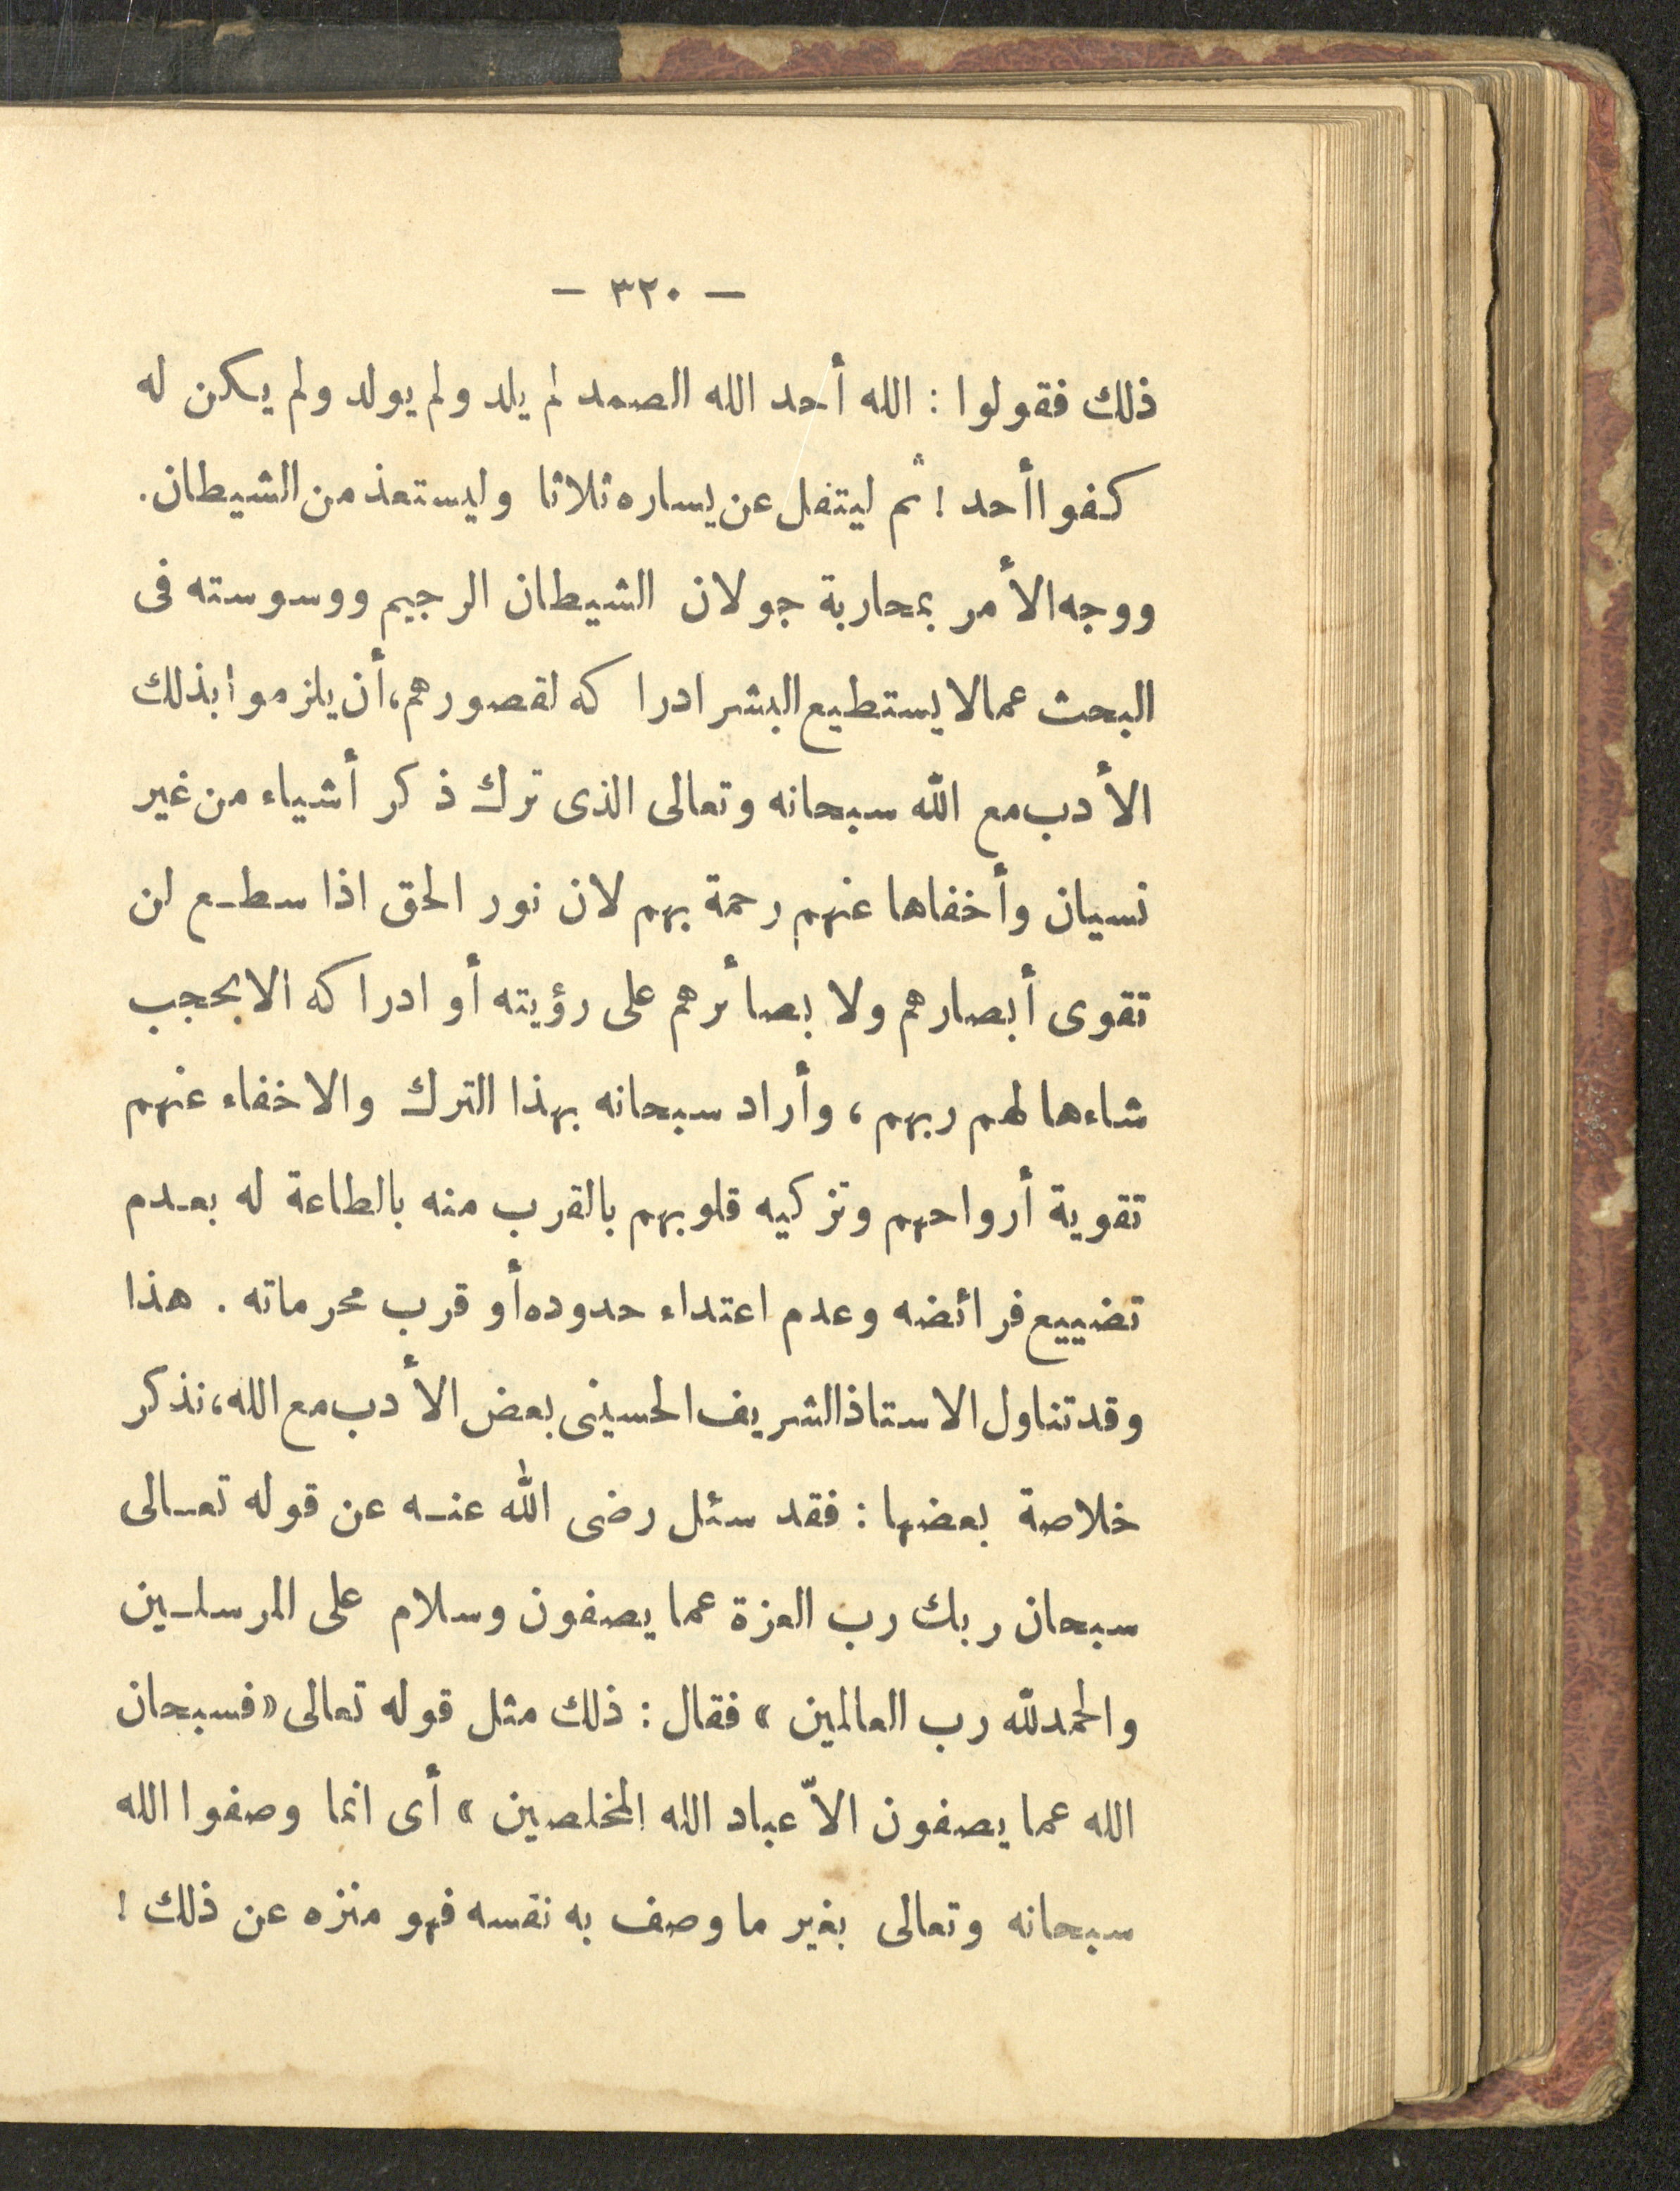 — ٣٢٠ —
ذلك فقولوا : الله أحد الله الصمد لم يلد ولم يولد ولم يكن له
كفوا أحد ! ثم ليتفل عن يساره ثلاثا وليستعذ من الشيطان .
ووجه الأمر بمحاربة جولان الشيطان الرجيم ووسوسته فى
البحث عما لا يستطيع البشر ادراكه لقصورهم، أن يلزموا بذلك
الأدب مع الله سبحانه وتعالى الذى ترك ذكر أشياء من غير
نسيان وأخفاها عنهم رحمة بهم لان نور الحق اذا سطـع لن
تقوى أبصارهم ولا بصائرهم على رؤيته أو ادراكه الا بحجب
شاءها لهم ربهم ، وأراد سبحانه بهذا الترك والاخفاء عنهم
تقوية أرواحهم وتزكيه قلوبهم بالقرب منه بالطاعة له بعـدم
تضييع فرائضه وعدم اعتداء حدوده أو قرب محرماته . هذا
وقد تناول الاستاذ الشريف الحسينى بعض الأدب مع الله، نذكر
خلاصة بعضها : فقد سئل رضى الله عنـه عن قوله تعـالى
سبحان ربك رب العزة عما يصفون وسلام على المرسلـين
والحمد لله رب العالمين » فقال : ذلك مثل قوله تعالى «فسبحان
الله عما يصفون الاّ عباد الله المخلصين » أى انما وصفوا الله
سبحانه وتعالى بغير ما وصف به نفسه فهو منزه عن ذلك !